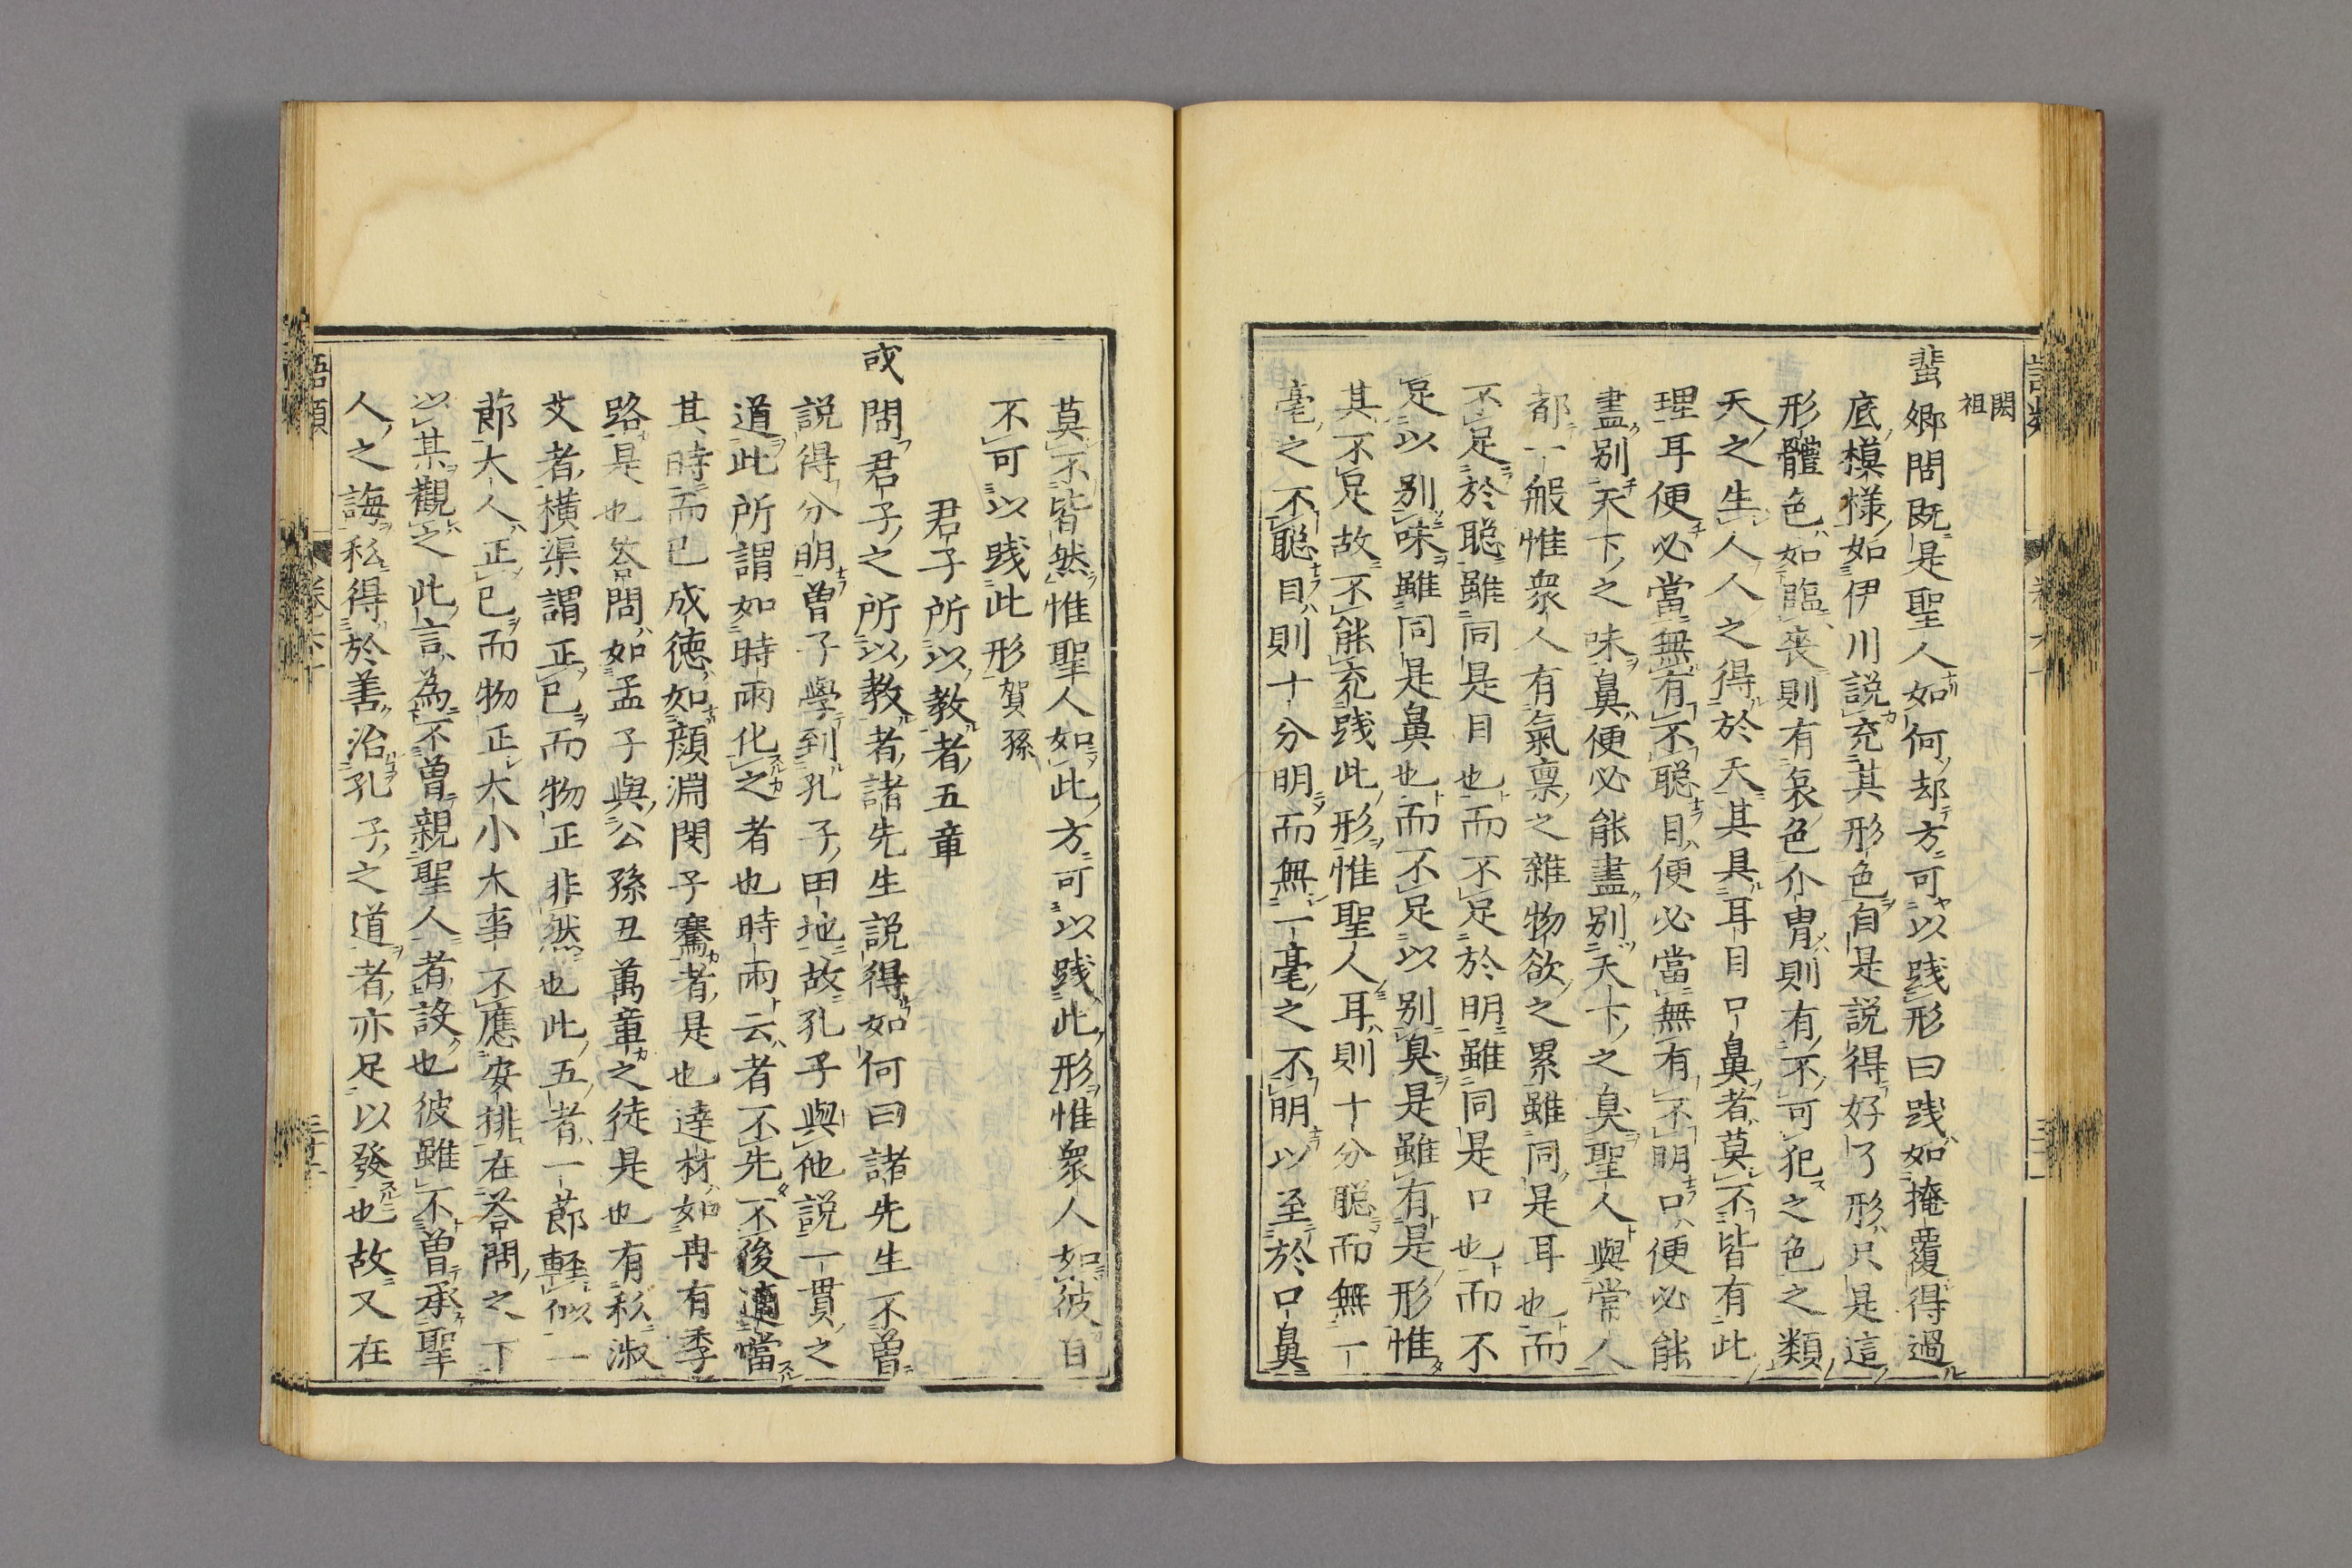 閎
祖
蜚卿問既是聖人如何却方可以践形曰践如掩覆得過
底模様如伊川説充其形色自是説得好了形只是這
形體色如臨喪則有哀色介冑則有不可犯之色之類
天之生人人之得於天其具耳目口鼻者莫不皆有此
理耳便必當無有不聡目便必當無有不明口便必能
盡别天下之味鼻便必能盡别天下之臭聖人與常人
都一般惟衆人有氣禀之雜物欲之累雖同是耳也而
不足於聡雖同是目也而不足於明雖同是口也而不
足以别味雖同是鼻也而不足以别臭是雖有是形惟
其不足故不能充践此形惟聖人耳則十分聡而無一
毫之不聡目則十分明而無一毫之不明以至於口鼻
莫不皆然惟聖人如此方可以践此形惟衆人如彼自
不可以践此形賀孫
君子所以教者五章
或問君子之所以教者諸先生説得如何曰諸先生不曽
説得分明曽子學到孔子田地故孔子與他説一貫之
道此所謂如時雨化之者也時雨云者不先不後適當
其時而已成徳如顔淵閔子騫者是也逹材如冉有季
路是也荅問如孟子與公孫丑萬章之徒是也有私淑
艾者横渠謂正已而物正非然也此五者一節軽似一
節大人正已而物正大小大事不應安排在荅問之下
以某觀之此言為不曽親聖人者設也彼雖不曽承聖
人之誨私得於善治孔子之道者亦足以發也故又在
語類
卷六十